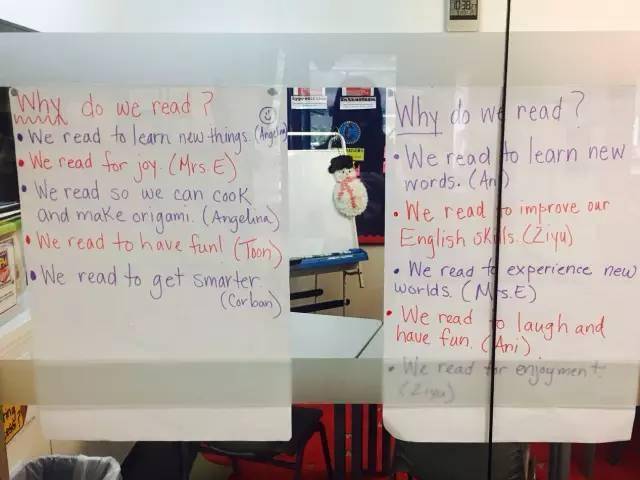 Why do we read?
• We read to learn new things. (Angelina)
• We read for joy. (Mrs. E)
• We read so we can cook
and make origami. (Angelina)
• We read to have fun! (Toon)
• We read to get smarter.
(Corban)
Why do we read?
• We read to learn new
words. (Ani)
• We read to improve our
English skills. (Ziyu)
• We read to experience new
worlds. (Mrs. E)
• We read to laugh and
have fun. (Ani)
• We read for enjoyment.
(Ziyu)